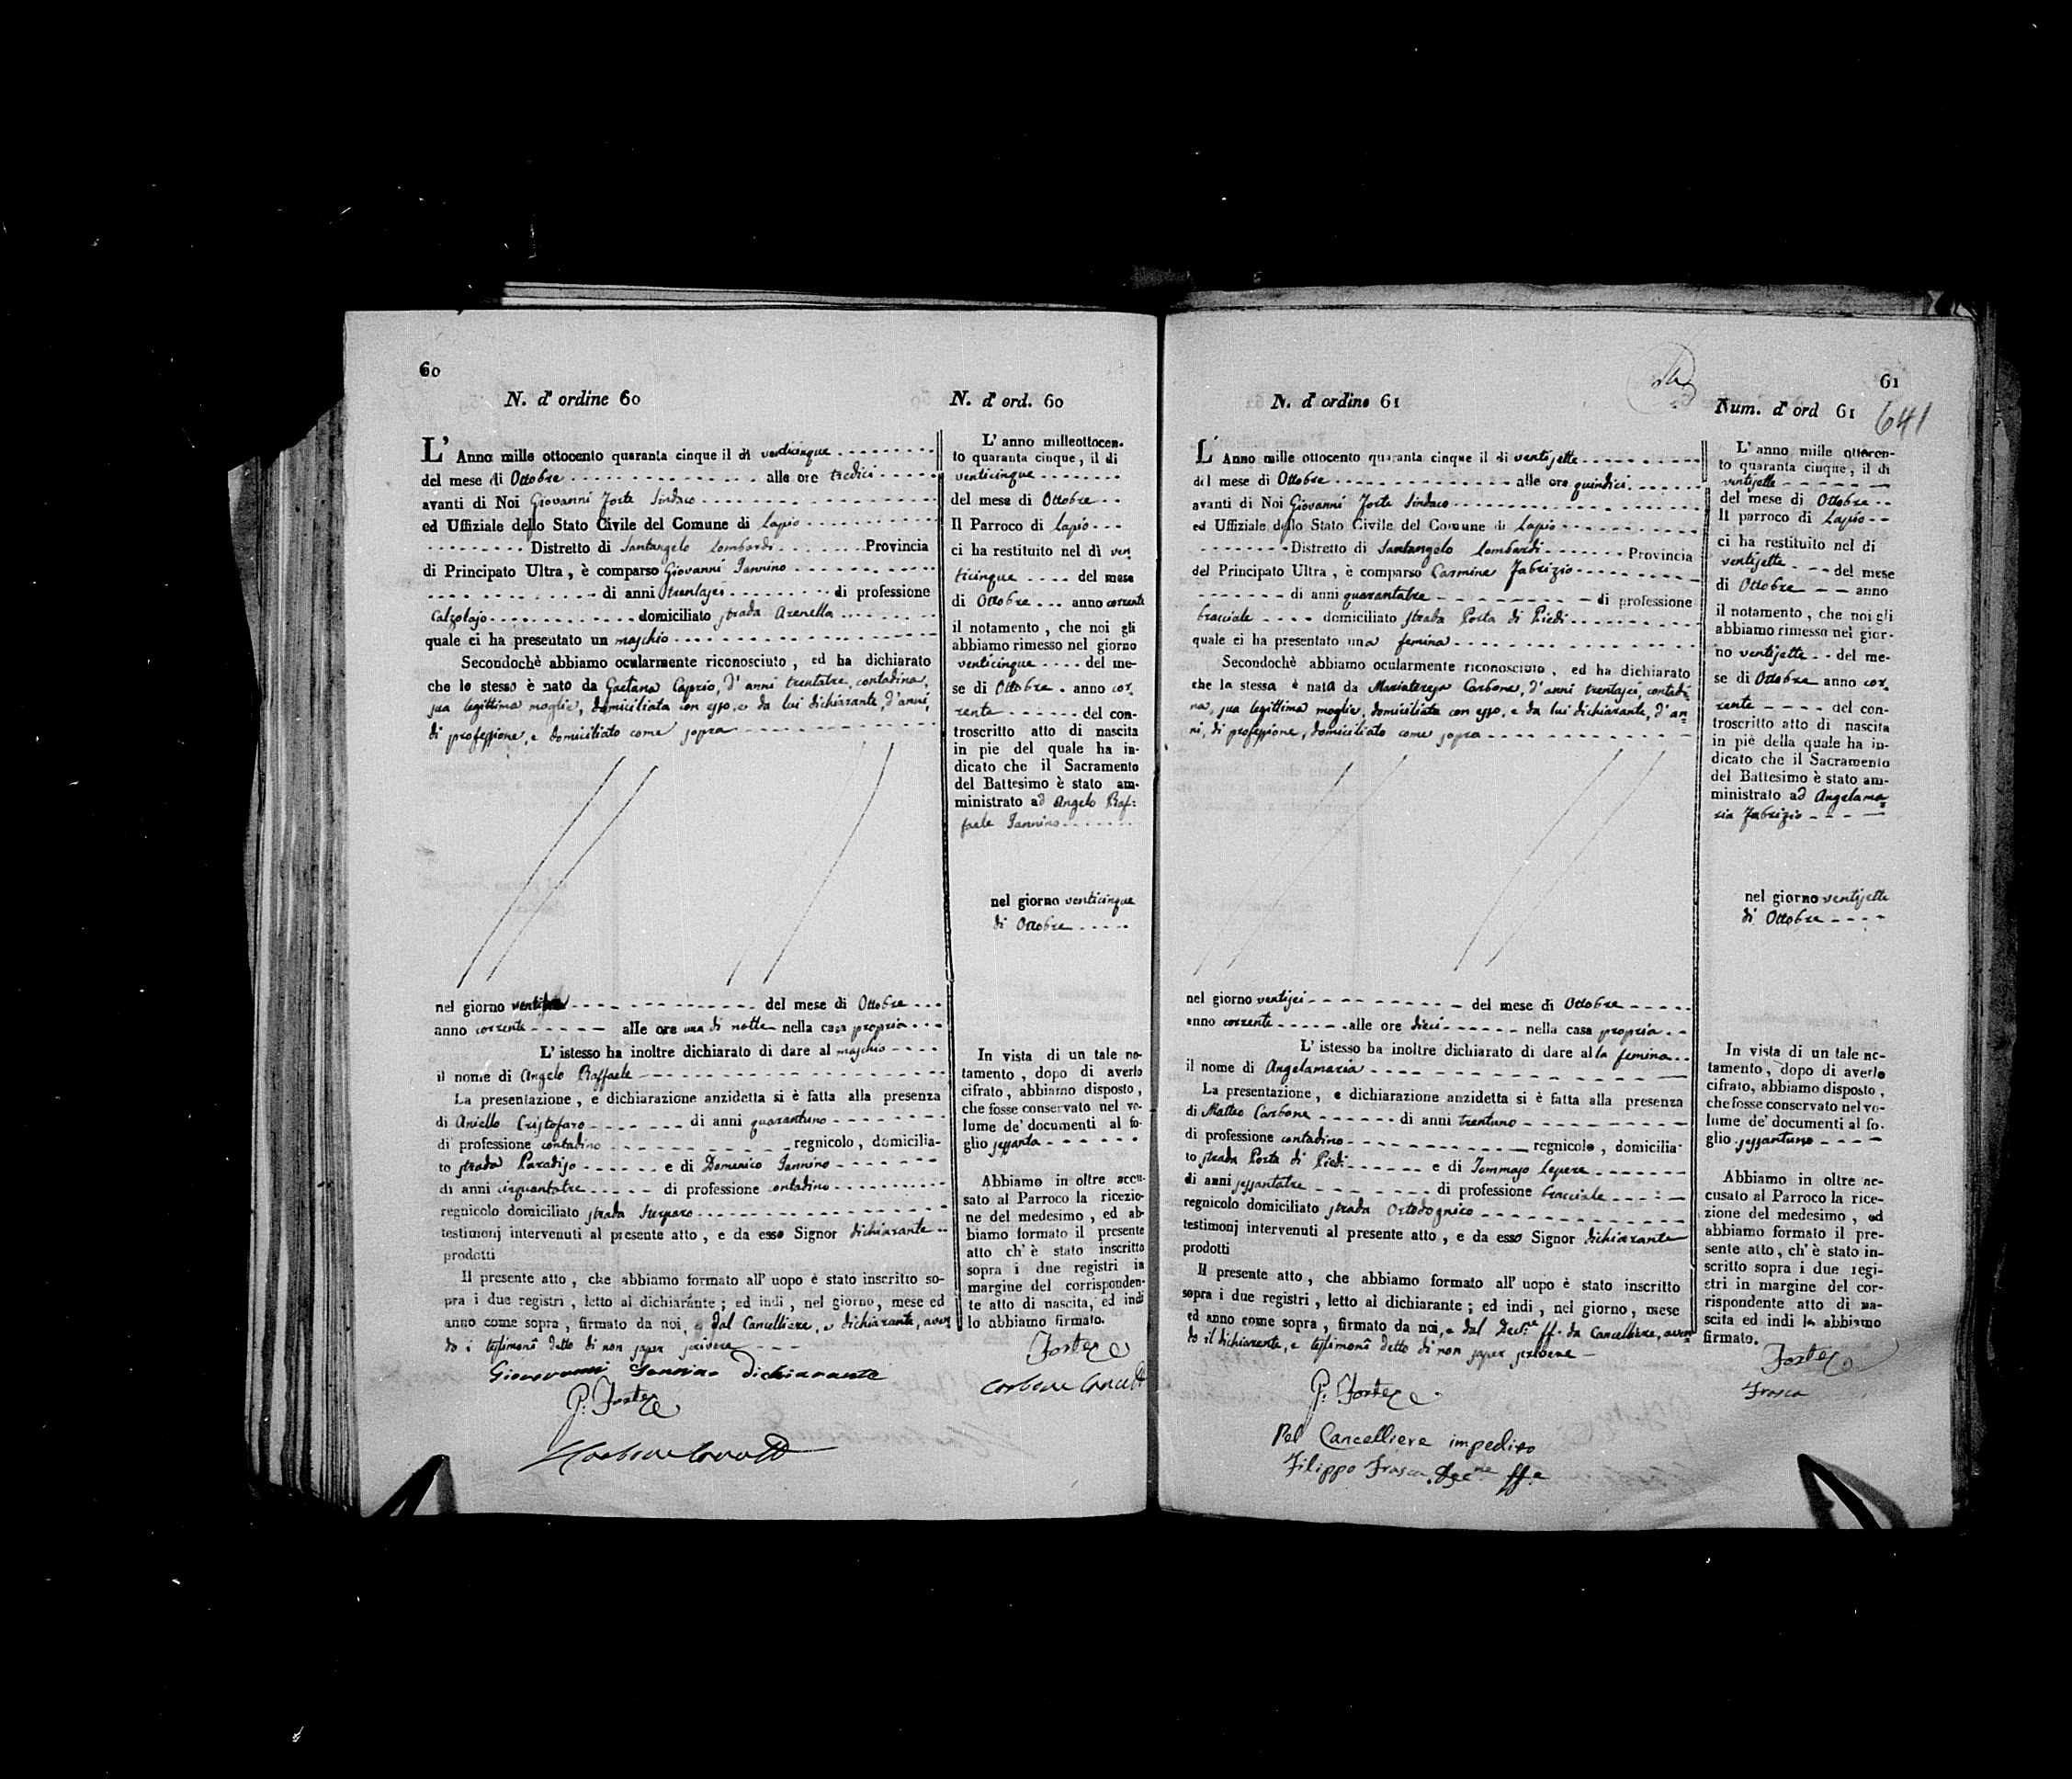 60
N. d' ordine 60
L' Anno mille ottocento quaranta cinque il di venticinque
del mese di Ottobre alle ore tredici
avanti di Noi Giovanni Forte Sindaco
ed Uffiziale dello Stato Civile del Comune di Lapio
Distretto di Santangelo Lombardi Provincia
di Principato Ultra, è comparso Giovanni Iannino
di anni trentasei di professione
Calzolajo domiciliato strada Arenella
quale ci ha presentato un maschio
Secondochè abbiamo ocularmente riconosciuto, ed ha dichiarato
che lo stesso è nato da Gaetana Caprio, d'anni trentatre, contadina,
sua legittima moglie, domiciliata con esso, e da lui dichiarante, d'anni,
di professione, e domiciliato come sopra
nel giorno del mese di Ottobre
anno corrente alle ore una di notte nella casa propria
L' istesso ha inoltre dichiarato di dare al maschio
il nome di Angelo Raffaele
La presentazione, e dichiarazione anzidetta si è fatta alla presenza
di Aniello Cristofaro di anni quarantuno
di professione contadino regnicolo, domicilia-
to strada Paradiso e di Domenico Iannino
di anni cinquantatre di professione contadino
regnicolo domiciliato strada
testimonj intervenuti al presente atto, e da esso Signor dichiarante
prodotti
Il presente atto, che abbiamo formato all' uopo è stato inscritto so-
pra i due registri, letto al dichiarante; ed indi, nel giorno, mese ed
anno come sopra, firmato da noi, e dal Cancelliere, e dichiarante, aven
do i testimonî detto di non saper scrivere
Giovanni Iannino dichiarante
G. Forte
N. d' ord. 60
L' anno milleottocen-
to quaranta cinque, il di
venticinque
del mese di Ottobre
Il Parroco di Lapio
ci ha restituito nel dì ven
ticinque del mese
di Ottobre anno corrente
il notamento, che noi gli
abbiamo rimesso nel giorno
venticinque del me-
se di Ottobre anno cor
rente del con-
troscritto atto di nascita
in pie del quale ha in-
dicato che il Sacramento
del Battesimo è stato am-
ministrato ad Angelo Raf=
faele Iannino
nel giorno venticinque
di Ottobre
In vista di un tale no-
tamento, dopo di averlo
cifrato, abbiamo disposto,
che fosse conservato nel vo-
lume de' documenti al fo-
glio sessanta
Abbiamo in oltre accu-
sato al Parroco la ricezio-
ne del medesimo, ed ab-
biamo formato il presente
atto ch' è stato inscritto
sopra i due registri in
margine del corrisponden-
te atto di nascita, ed indi
lo abbiamo firmato.
Forte
Carbone Cancell
61
641
N. d' ordine 61
L' Anno mille ottocento quaranta cinque il di ventisette
del mese di Ottobre alle ore quindici
avanti di Noi Giovanni Forte Sindaco
ed Uffiziale dello Stato Civile del Comune di Lapio
Distretto di Santangelo Lombardi Provincia
del Principato Ultra, è comparso Carmine Fabrizio
di anni quarantatre di professione
bracciale domiciliato strada Porta di Piedi
quale ci ha presentato una femina
Secondochè abbiamo ocularmente riconosciuto, ed ha dichiarato
che la stessa è nata da Mariateresa Carbone, d'anni trentasei, contadi
na, sua legittima moglie, domiciliata con esso, e da lui dichiarante, d'an
ni, di professione, domiciliato come sopra
nel giorno ventisei del mese di Ottobre
anno corrente alle ore dieci nella casa propria
L' istesso ha inoltre dichiarato di dare alla femina
il nome di Angelamaria
La presentazione, e dichiarazione anzidetta si è fatta alla presenza
di Matteo Carbone di anni trentuno
di professione contadino regnicolo, domicilia-
to strada Porta di Piedi e di Tommaso Lepere
di anni sessantatre di professione bracciale
regnicolo domiciliato strada Ortodognico
testimonj intervenuti al presente atto, e da esso Signor dichiarante
prodotti
Il presente atto, che abbiamo formato all' uopo è stato inscritto
sopra i due registri, letto al dichiarante; ed indi, nel giorno, mese
ed anno come sopra, firmato da noi, e dal Dec.ne ff. da Cancelliere, aven
do il dichiarante, e testimonî detto di non saper scrivere
G. Forte
Pel Cancelliere impedito
Filippo Frasca Dec.ne ff.e
Num. d' ord 61
L' anno mille ottocen-
to quaranta cinque, il di
ventisette
del mese di Ottobre
Il parroco di Lapio
ci ha restituito nel dì
ventisette del mese
di Ottobre anno
il notamento, che noi gli
abbiamo rimesso nel gior-
no ventisette del me-
se di Ottobre anno cor
rente del con-
troscritto atto di nascita
in piè della quale ha in-
dicato che il Sacramento
del Battesimo è stato am-
ministrato ad Angelama
ria Fabrizio
nel giorno ventisette
di Ottobre
In vista di un tale no-
tamento, dopo di averlo
cifrato, abbiamo disposto,
che fosse conservato nel vo-
lume de' documenti al fo-
glio sessantuno
Abbiamo in oltre ac-
cusato al Parroco la rice-
zione del medesimo, ed
abbiamo formato il pre-
sente atto, ch' è stato in-
scritto sopra i due regi-
stri in margine del cor-
rispondente atto di na-
scita ed indi lo abbiamo
firmato.
Forte
Frasca